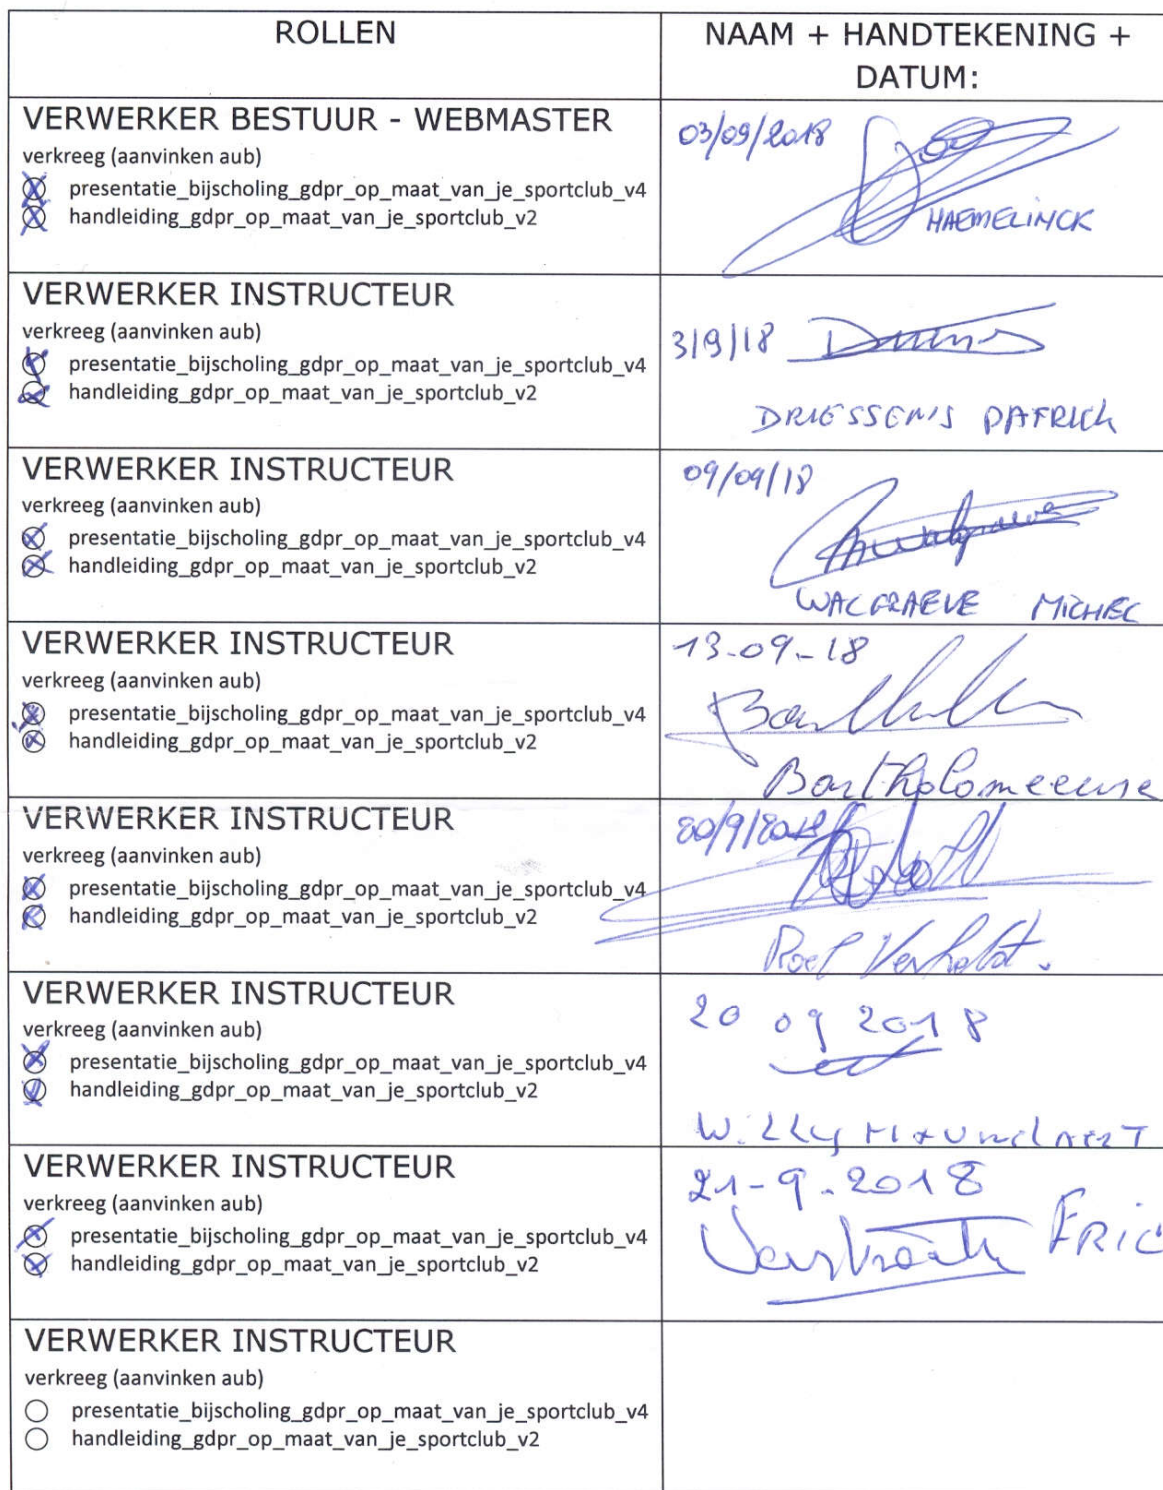 ROLLEN
NAAM + HANDTEKENING +
DATUM:
VERWERKER BESTUUR - WEBMASTER
verkreeg (aanvinken aub)
presentatie_bijscholing_gdpr_op_maat_van_je_sportclub_v4
handleiding_gdpr_op_maat_van_je_sportclub_v2
03/09/2018
HAEMELINCK
VERWERKER INSTRUCTEUR
verkreeg (aanvinken aub)
presentatie_bijscholing_gdpr_op_maat_van_je_sportclub_v4
handleiding_gdpr_op_maat_van_je_sportclub_v2
3/9/18
DRIESSENS PATRICK
VERWERKER INSTRUCTEUR
verkreeg (aanvinken aub)
presentatie_bijscholing_gdpr_op_maat_van_je_sportclub_v4
handleiding_gdpr_op_maat_van_je_sportclub_v2
09/09/18
WALGRAEVE MICHEL
VERWERKER INSTRUCTEUR
verkreeg (aanvinken aub)
presentatie_bijscholing_gdpr_op_maat_van_je_sportclub_v4
handleiding_gdpr_op_maat_van_je_sportclub_v2
13-09-18
Bartholomeeuse
VERWERKER INSTRUCTEUR
verkreeg (aanvinken aub)
presentatie_bijscholing_gdpr_op_maat_van_je_sportclub_v4
handleiding_gdpr_op_maat_van_je_sportclub_v2
20/9/2018
Roel Verholst.
VERWERKER INSTRUCTEUR
verkreeg (aanvinken aub)
presentatie_bijscholing_gdpr_op_maat_van_je_sportclub_v4
handleiding_gdpr_op_maat_van_je_sportclub_v2
20 09 2018
WiLLy
VERWERKER INSTRUCTEUR
verkreeg (aanvinken aub)
presentatie_bijscholing_gdpr_op_maat_van_je_sportclub_v4
handleiding_gdpr_op_maat_van_je_sportclub_v2
21-9-2018
Verstraete ERIC
VERWERKER INSTRUCTEUR
verkreeg (aanvinken aub)
presentatie_bijscholing_gdpr_op_maat_van_je_sportclub_v4
handleiding_gdpr_op_maat_van_je_sportclub_v2